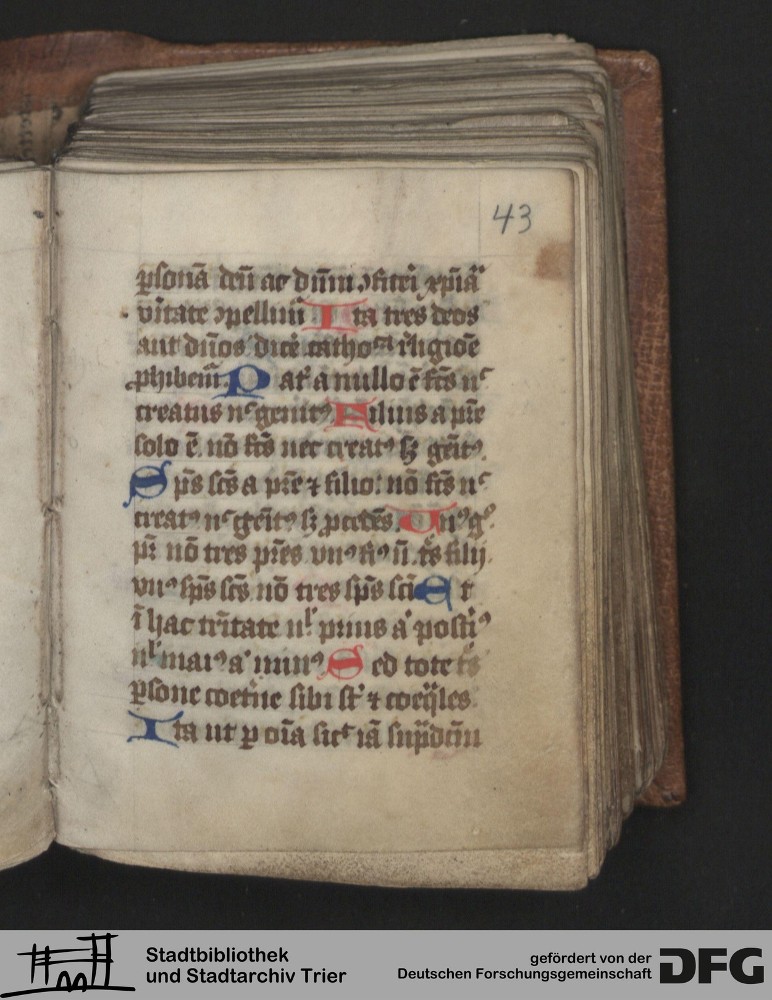 43
ꝑsonā deū ac dūm ꝯfiteri xpīaͣ
vītate ꝯpellim̄ Ita tres deos
aut dn̄os dicē cathoᶜᵃ religiōe
ꝓhibem̄ Patˀ a nullo ē fcs nͨ
creatus nͨ genitꝰ Filius a pr̄e
solo ē nō fcs nec creatꝰ sꝫ gēitꝰ
Sps scs a pr̄e ⁊ filio nō fcs nͨ
creatꝰ nͨ gēitꝰ sꝫ ꝓcedēs Unꝰ gͦ
pr̄ nō tres pr̄es vnꝰ fiꝰ n̄ ts filij
vnꝰ sps scs nō tres sps sci Et
ī hac trītate nˡ prius aͭ postiꝰ
nˡ maiꝰ aͭ minꝰ Sed tote ts
ꝑsone coetˀne sibi st̄ ⁊ coeq̄les
Ita ut ꝑ oīa sicͭ iā sup̄dcm̄
Stadtbibliothek
und Stadtarchiv Trier
gefördert von der
Deutschen Forschungsgemeinschaft
DFG